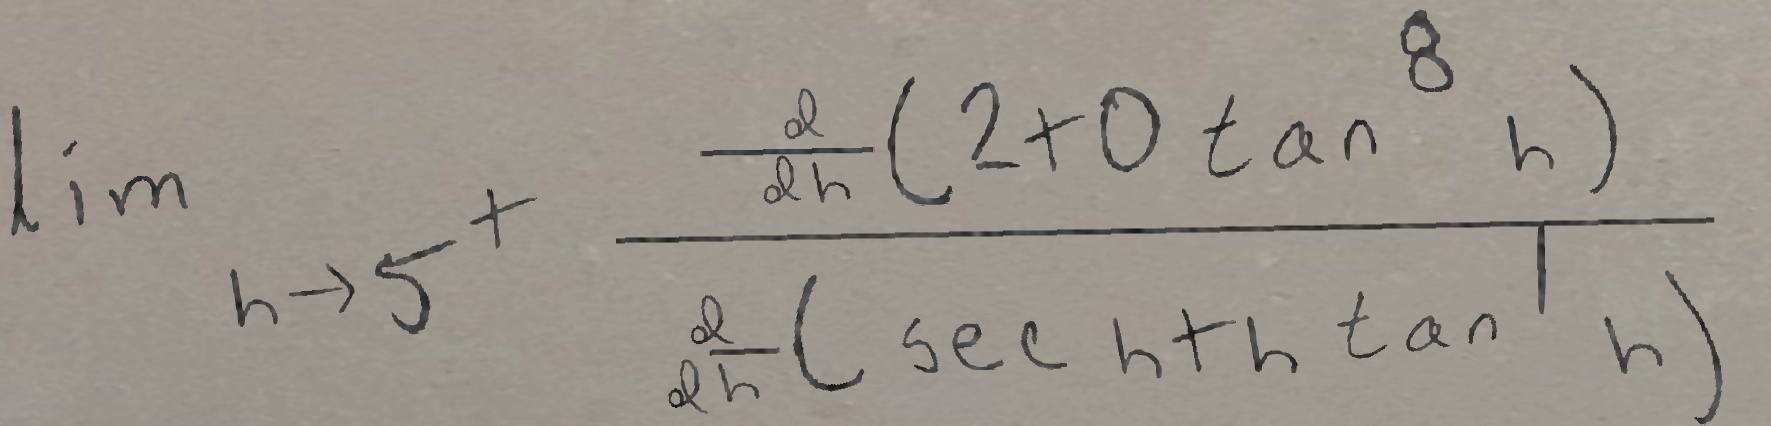 \lim_{h \to 5^+} \frac{\frac{d}{dh}(2+0\tan^8 h)}{\frac{d}{dh}(\sec h+h\tan^1 h)}